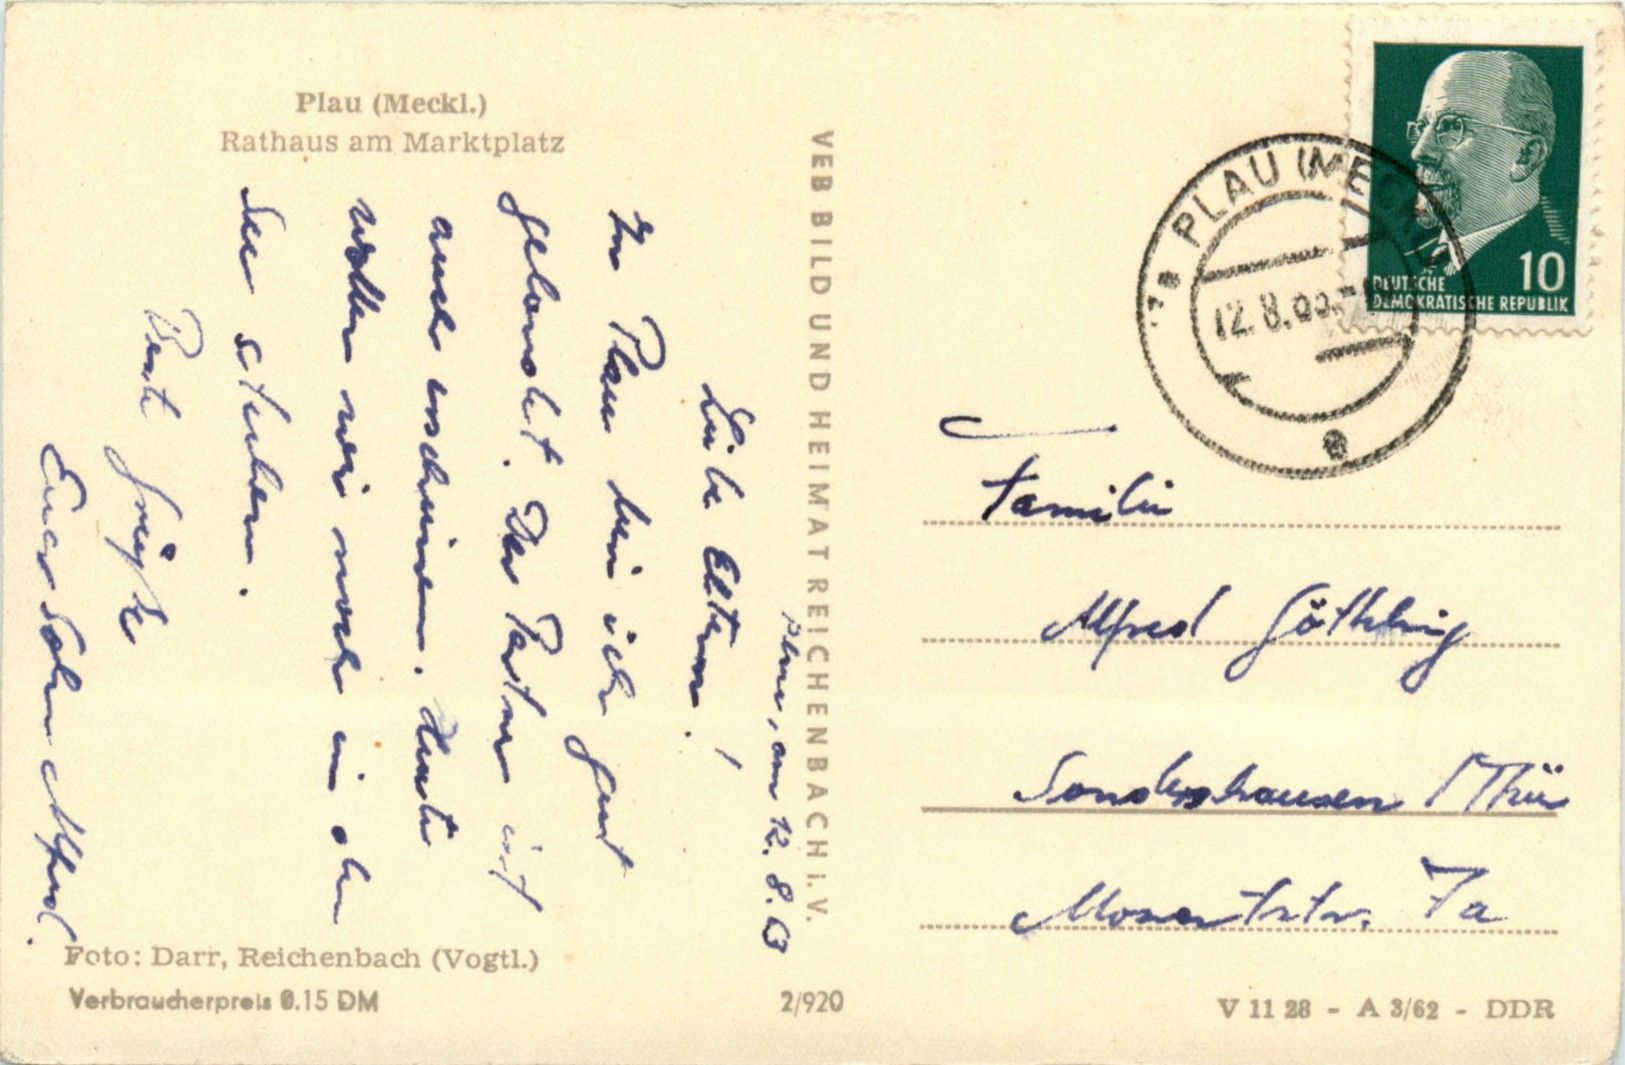 Plau (Meckl.)
Rathaus am Marktplatz
Plau, am 12. 8. 63
Liebe Eltern!
In Plau bin ich gut
gelandet. Der Partner ist
auch erschienen. Heute
wollen wir noch in den
See stechen.
Beste Grüße
Euer Sohn Alfred.
Foto: Darr, Reichenbach (Vogtl.)
Verbraucherpreis 0.15 DM
VEB BILD UND HEIMAT REICHENBACH I. V.
2/920
PLAU (MECKL)
12. 8. 63
10
DEUTSCHE
DEMOKRATISCHE REPUBLIK
Familie
Alfred Göthling
Sondershausen /Thür
Mozartstr. 7a
V 11 28 - A 3/62 - DDR